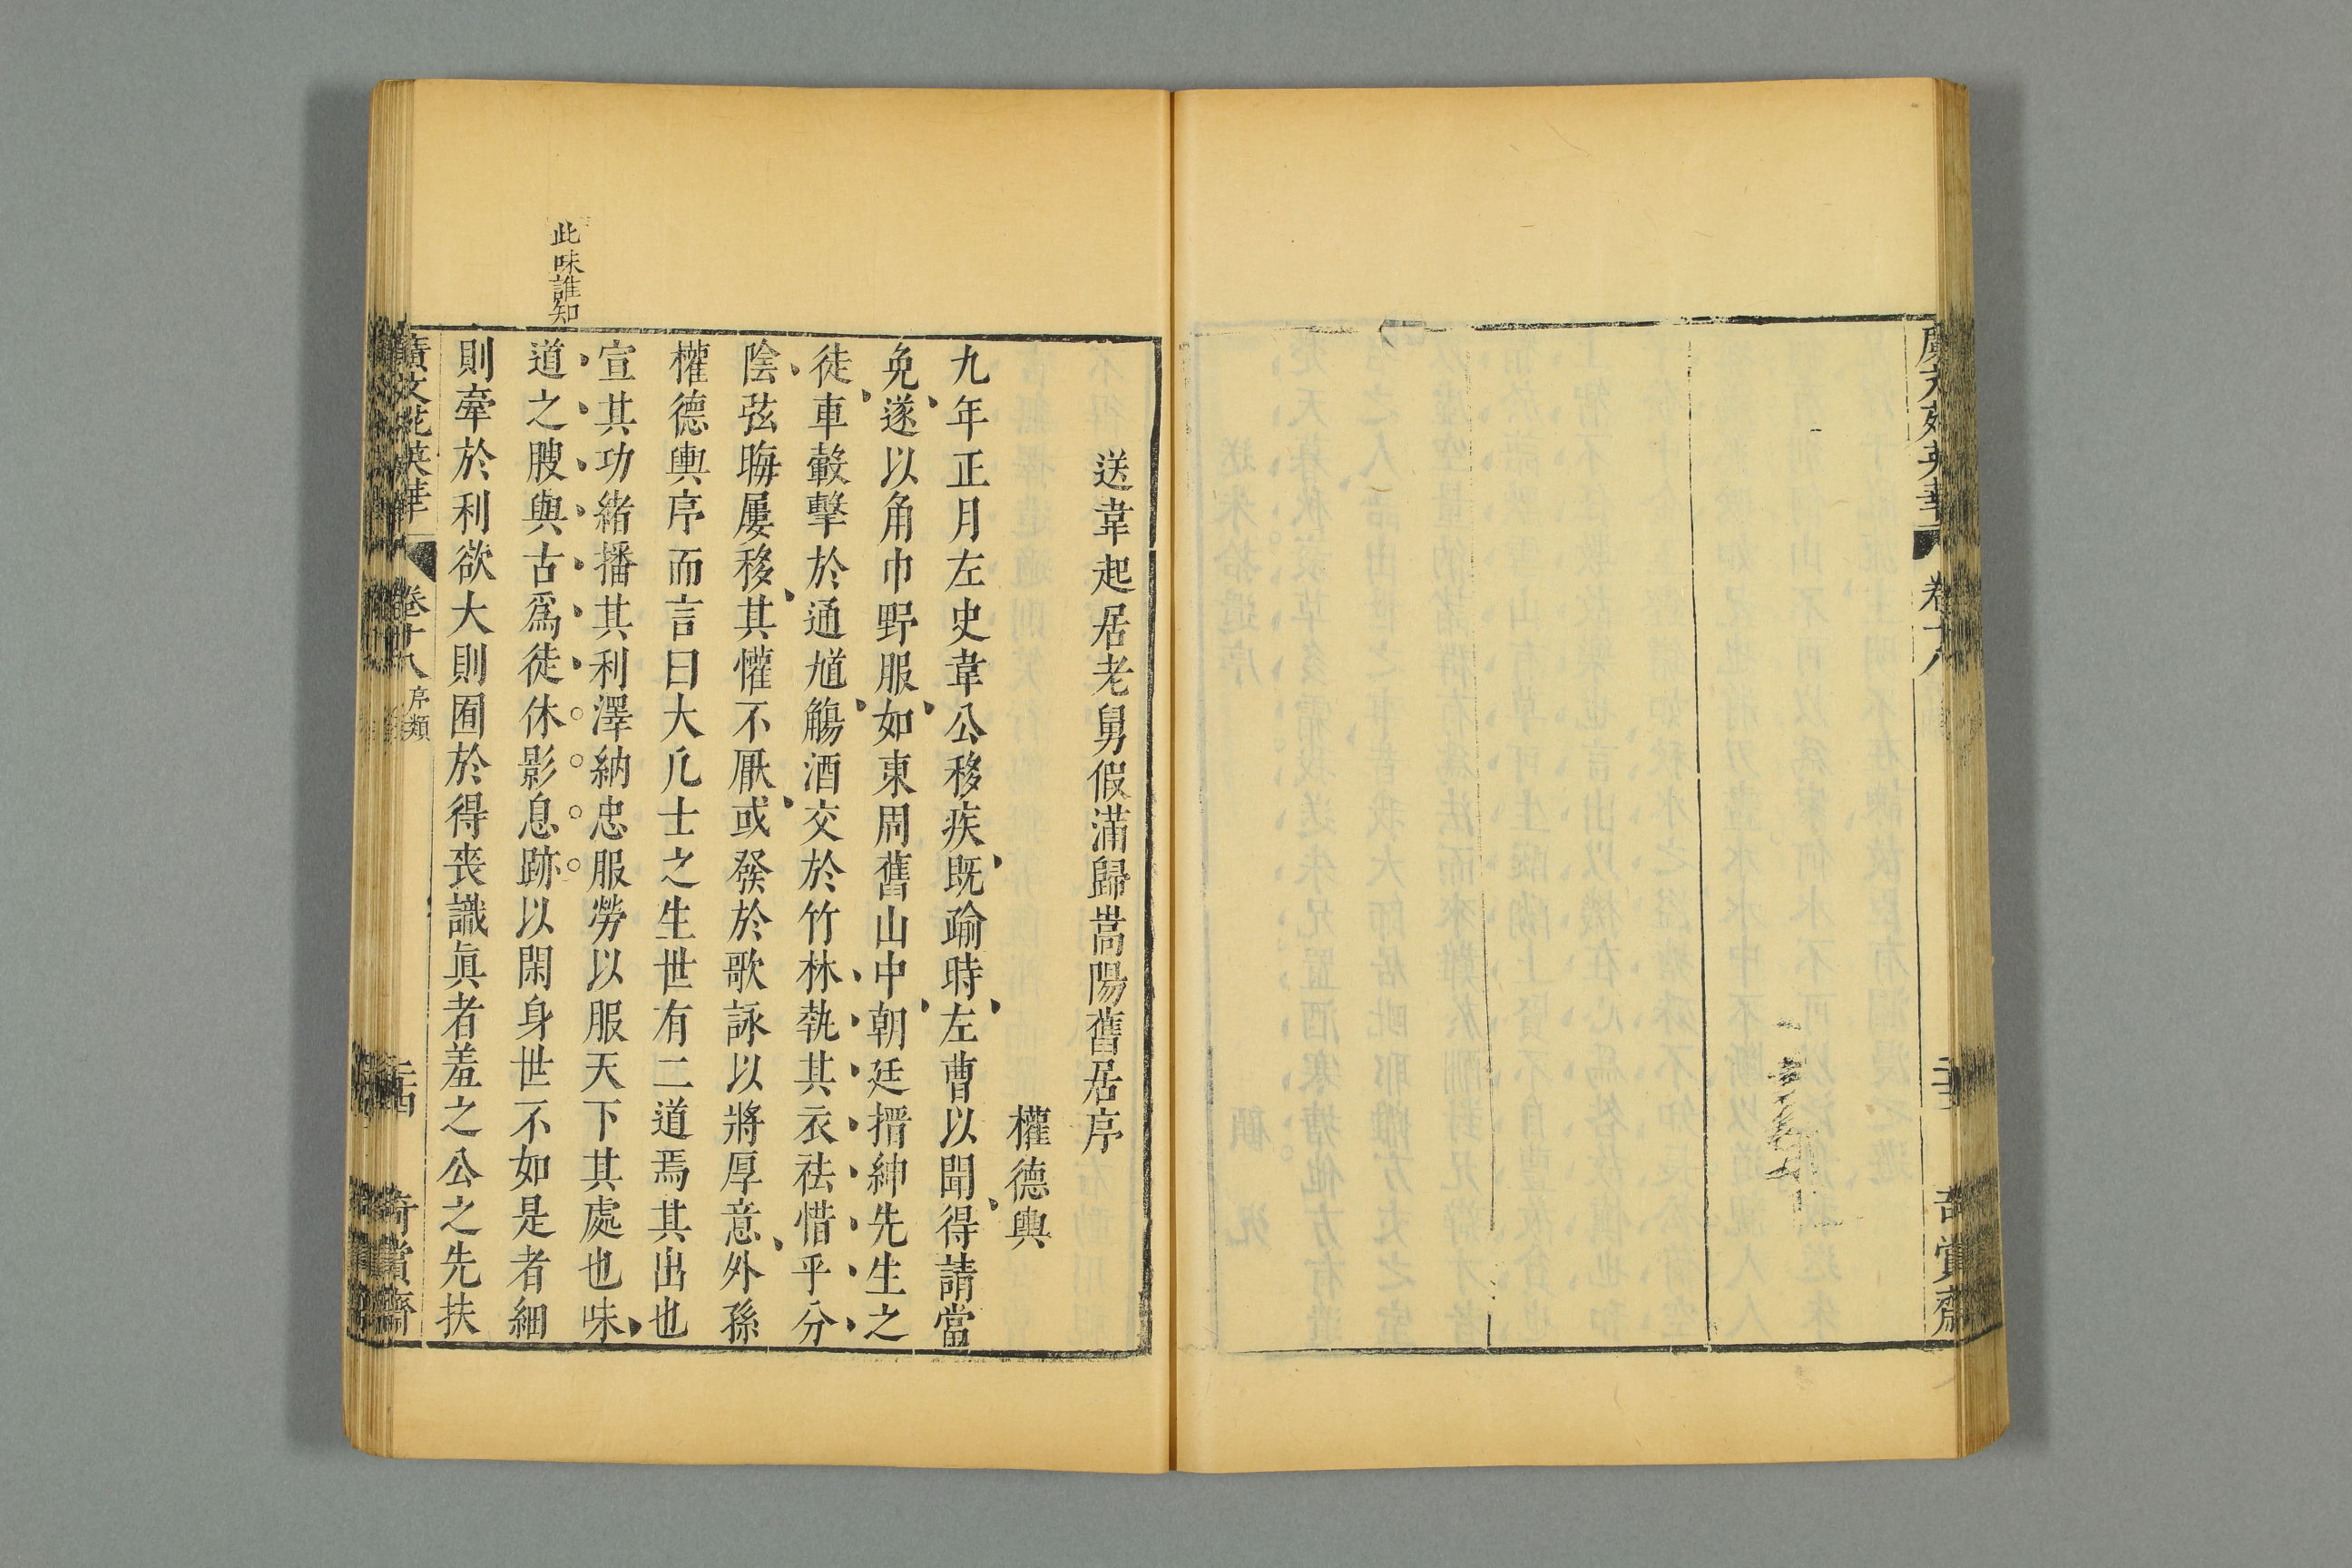 廣文苑英華
卷十八
奇賞齋
送韋起居老舅假滿歸嵩陽舊居序
權德輿
九年正月左史韋公移疾既踰時左曹以聞得請當
免遂以角巾野服如東周舊山中朝廷搢紳先生之
徒車轂擊於通逵觴酒交於竹林執其衣袪惜乎分
陰弦晦屢移其懽不厭或發於歌詠以將厚意外孫
權德輿序而言曰大凡士之生世有二道焉其出也
宣其功緒播其利澤納忠服勞以服天下其處也味
道之腴與古爲徒休影息跡以閑身世不如是者細
則牽於利欲大則囿於得喪識眞者羞之公之先扶
此味誰知
廣文苑英華
卷十八
序類
二十四
奇賞齋